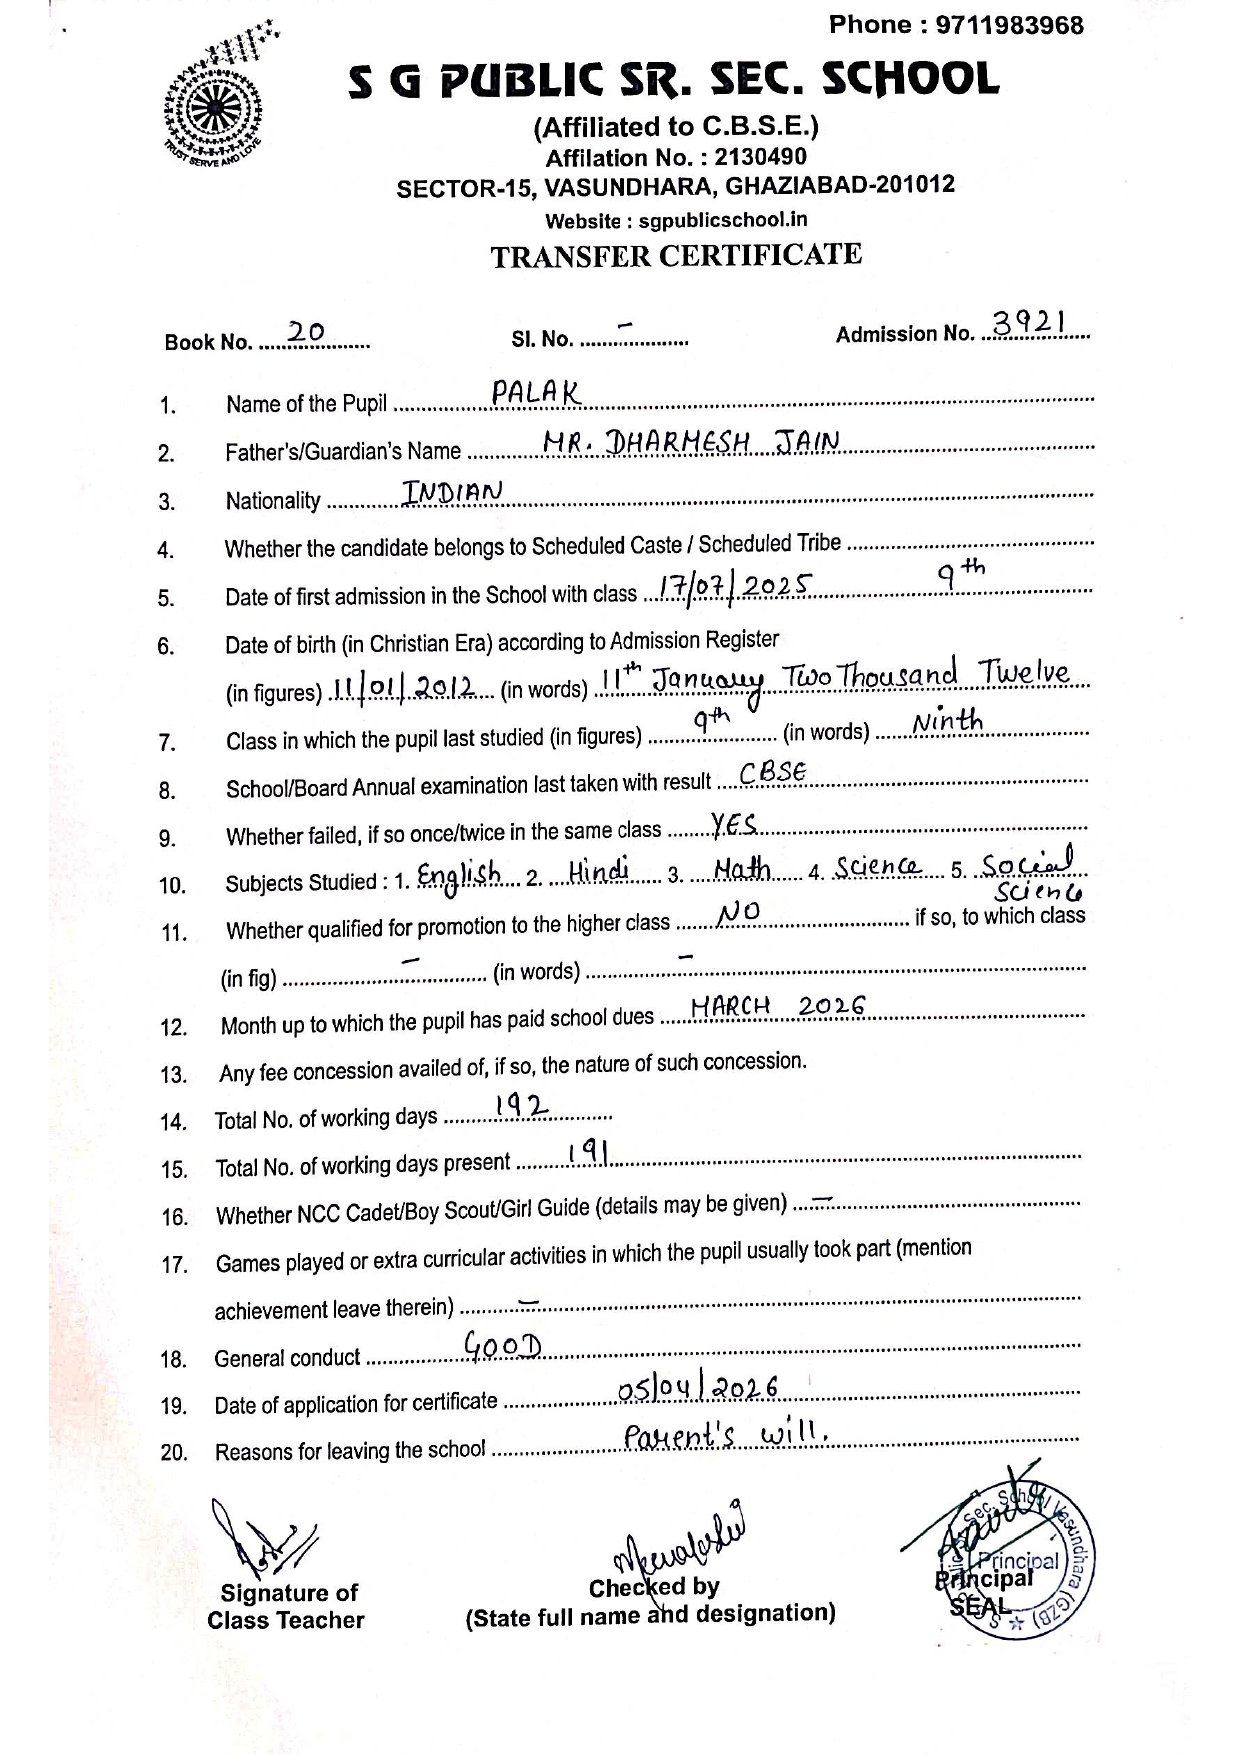 Phone : 9711983968
TRUST SERVE AND LOVE
S G PUBLIC SR. SEC. SCHOOL
(Affiliated to C.B.S.E.)
Affilation No. : 2130490
SECTOR-15, VASUNDHARA, GHAZIABAD-201012
Website : sgpublicschool.in
TRANSFER CERTIFICATE
Book No. 20 Sl. No. – Admission No. 3921
1. Name of the Pupil PALAK
2. Father's/Guardian's Name MR. DHARMESH JAIN
3. Nationality INDIAN
4. Whether the candidate belongs to Scheduled Caste / Scheduled Tribe
5. Date of first admission in the School with class 17/07/2025 9th
6. Date of birth (in Christian Era) according to Admission Register
(in figures) 11/01/2012 (in words) 11th January Two Thousand Twelve
7. Class in which the pupil last studied (in figures) 9th (in words) Ninth
8. School/Board Annual examination last taken with result CBSE
9. Whether failed, if so once/twice in the same class YES
10. Subjects Studied : 1. English 2. Hindi 3. Math 4. Science 5. Social
Science
11. Whether qualified for promotion to the higher class NO if so, to which class
(in fig) – (in words) –
12. Month up to which the pupil has paid school dues MARCH 2026
13. Any fee concession availed of, if so, the nature of such concession.
14. Total No. of working days 192
15. Total No. of working days present 191
16. Whether NCC Cadet/Boy Scout/Girl Guide (details may be given) –
17. Games played or extra curricular activities in which the pupil usually took part (mention
achievement leave therein) –
18. General conduct GOOD
19. Date of application for certificate 05/04/2026
20. Reasons for leaving the school Parent's will.
Sec. School Vasundhara (GZB)
Principal
Signature of
Class Teacher
Checked by
(State full name and designation)
Principal
SEAL